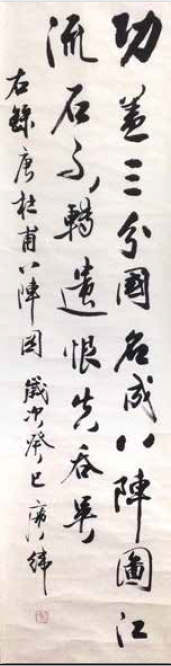 功蓋三分國名成八陣圖江
流石不轉遺恨失吞吳
右錄唐杜甫八陣図 歲次癸巳 緯